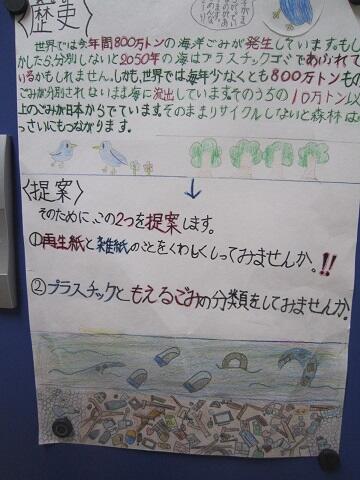 〈歴史〉
世界では今年間800万トンの海洋ごみが発生しています。もし
かしたら、分別しないと2050年の海はプラスチックゴミであふれて
いるかもしれません。しかも、世界では、毎年少なくとも800万トンもの
ごみが分別されないまま海に流出しています。そのうちの10万トン以
上のごみが日本からでています。そのままリサイクルしないと森林は
っさいにもつながります。
〈提案〉
そのために、この2つを提案します。
①再生紙と雑紙のことをくわしくしってみませんか。!!
②プラスチックともえるごみの分類をしてみませんか。